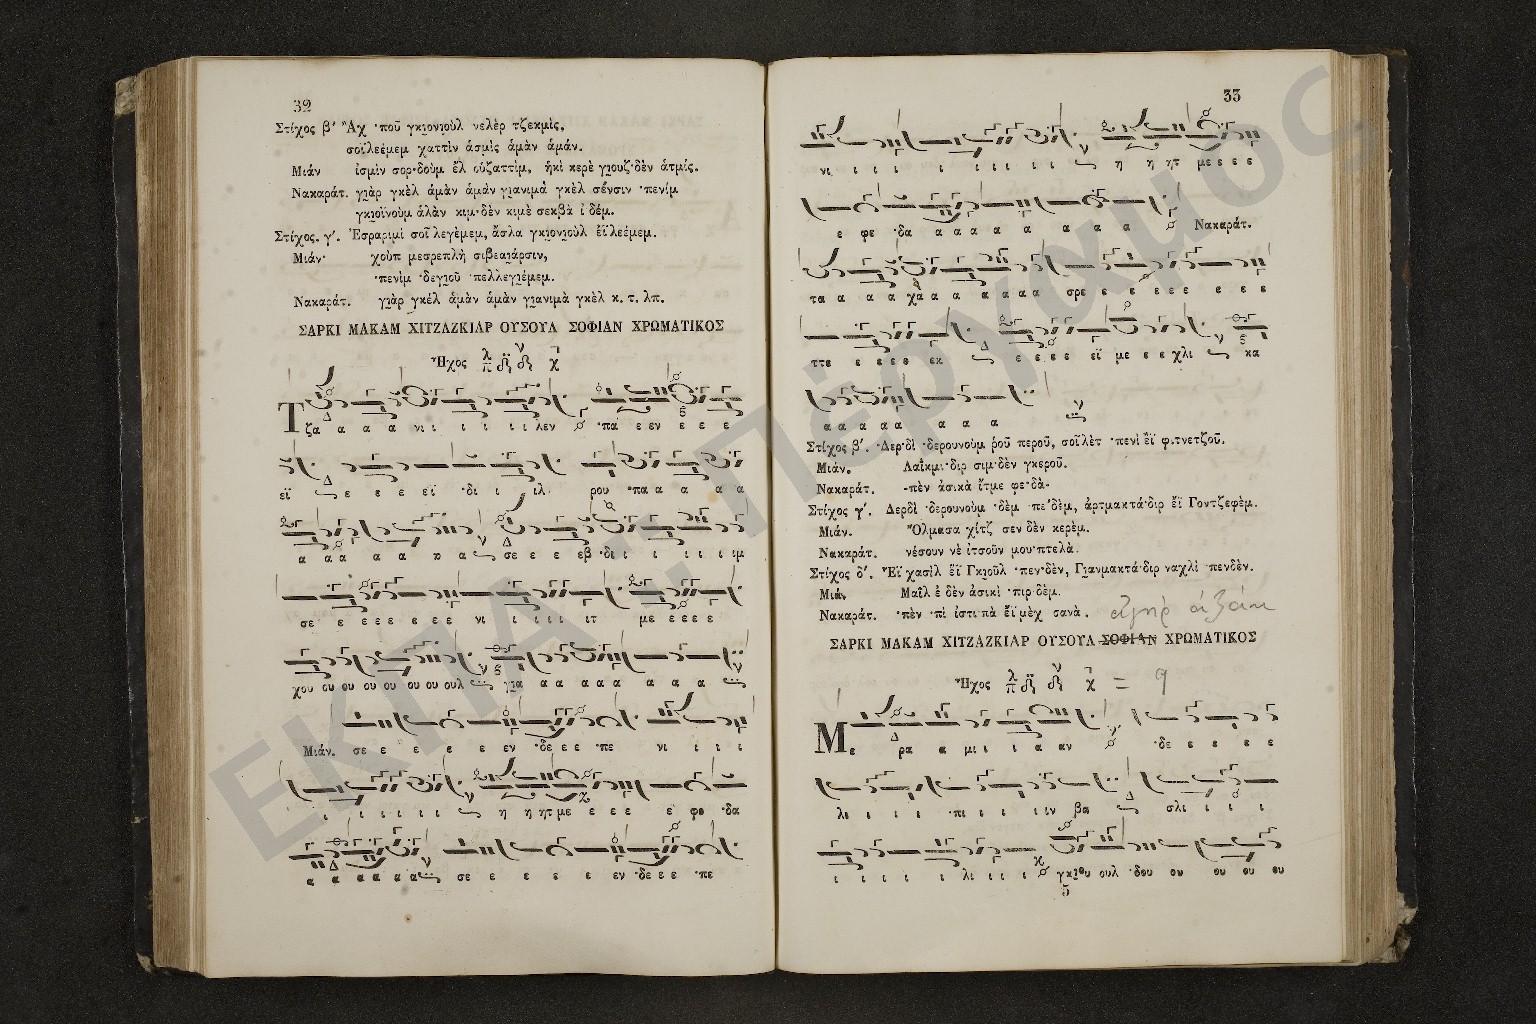 32
Στίχος β′ Ἄχ ·ποῦ γκιονιοὺλ νελὲρ τζεκμὶς,
σοϊλεέμεμ χαττὶν ἀσμὶς ἀμὰν ἀμάν.
Μιάν ἰσμὶν σορ·δοὺμ ἐλ οὐζαττὶμ, ἠκὶ κερὲ γιουζ·δὲν ἀτμίς.
Νακαράτ. γιὰρ γκὲλ ἀμὰν ἀμὰν γιανιμὰ γκὲλ σένσιν ·πενὶμ
γκιοϊνοὺμ ἀλὰν κιμ·δὲν κιμὲ σεκβὰ ἰ δέμ.
Στίχος. γ′. Ἐσραριμὶ σοῒ λεγέμεμ, ἄσλα γκιονιοὺλ ἐϊλεέμεμ.
Μιάν· χοὺπ μεσρεπλὴ σιβεαιάρσιν,
·πενὶμ ·δεγιοῦ ·πελλεγιέμεμ.
Νακαράτ. γιὰρ γκὲλ ἀμὰν ἀμὰν γιανιμὰ γκὲλ κ. τ. λπ.
ΣΑΡΚΙ ΜΑΚΑΜ ΧΙΤΖΑΖΚΙΑΡ ΟΥΣΟΥΛ ΣΟΦΙΑΝ ΧΡΩΜΑΤΙΚΟΣ
Ἦχος
Τζα α α α νι ι ι ι ι λεν ·πα ε εν ε ε ε
εϊ ε ε ε εϊ ·δι ι ιλ ρου ·πα α α α α
α αα α α α α σε ε ε εβ ·δι ι ι ι ι ι ιμ
σε ε ε ε ε ε ε νι ι ι ι ιτ με ε ε ε ε
χου ου ου ου ου ου ου ουλ για α α α α α α α α
Μιάν. σε ε ε ε ε εν ·δε ε ε ·πε νι ι ι ι
ι ι ι ι ι ι η η ητ με ε ε ε ε φε ·δα
α α α α α α σε ε ε ε ε εν ·δε ε ε ·πε
33
νι ι ι ι ι ι ι ι ι η η ητ με ε ε ε
ε φε ·δα α α α α α α α Νακαράτ.
τα α α α χα α α α α α α σρε ε ε ε ε ε ε ε ε
ττε ε ε ε ε εκ ε ε ε ε εϊ με ε ε χλι κα
α α α α α α α α
Στίχος β′. ·Δερ·δὶ ·δερουνοὺμ ῥοῦ περοῦ, σοῒ λὲτ ·πενὶ ἒϊ φιτνετζοῦ.
Μιάν. Λαΐκμι·διρ σιμ·δὲν γκεροῦ.
Νακαράτ. -πὲν ἀσικὰ ἴτμε φε·δὰ-
Στίχος γ′. Δερδὶ ·δερουνοὺμ ·δὲμ πε′δὲμ, ἀρτμακτά·διρ ἒϊ Γοντζεφὲμ.
Μιάν. Ὄλμασα χίτζ σεν δὲν κερὲμ.
Νακαράτ. νέσουν νὲ ἰτσοῦν μου·πτελὰ.
Στίχος δ′. Ἒϊ χασὶλ ἒϊ Γκιοῦλ ·πεν·δὲν, Γιανμακτά·διρ ναχλὶ ·πενδὲν.
Μιὰν Μαῒλ ἐ δὲν ἀσικὶ ·πιρ·δὲμ.
Νακαράτ. ·πὲν ·πὶ ἰστι πὰ ἒϊ μὲχ σανὰ.
ΣΑΡΚΙ ΜΑΚΑΜ ΧΙΤΖΑΖΚΙΑΡ ΟΥΣΟΥΛ ΣΟΦΙΑΝ ΧΡΩΜΑΤΙΚΟΣ
Ἦχος
Με ρα α μι ι ι α αν ·δε ε ε ε ε ε
λι ι ι ι ·πι ι ι ι ιιν βα σλι ι ι ι
ι ι ι ι ι λι ι ι ι γκιου ουλ ·δου ου ου ου ου
5
ΕΚΠΑ - Πέργαμος